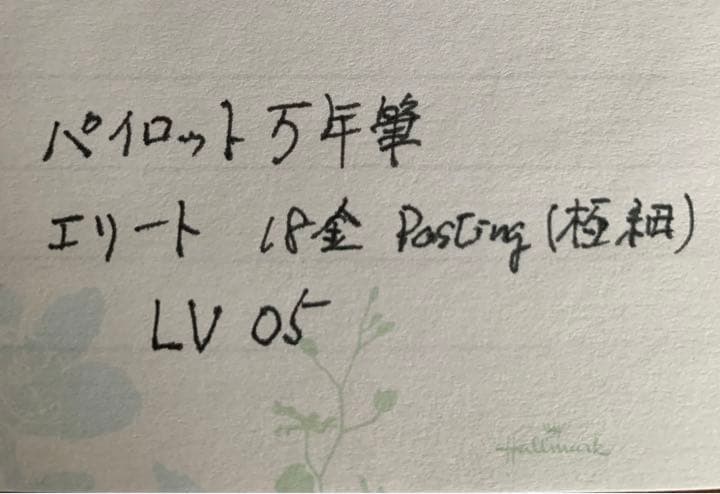 パイロット万年筆
エリート 18金 Posting (極細)
LV 05
Hallmark